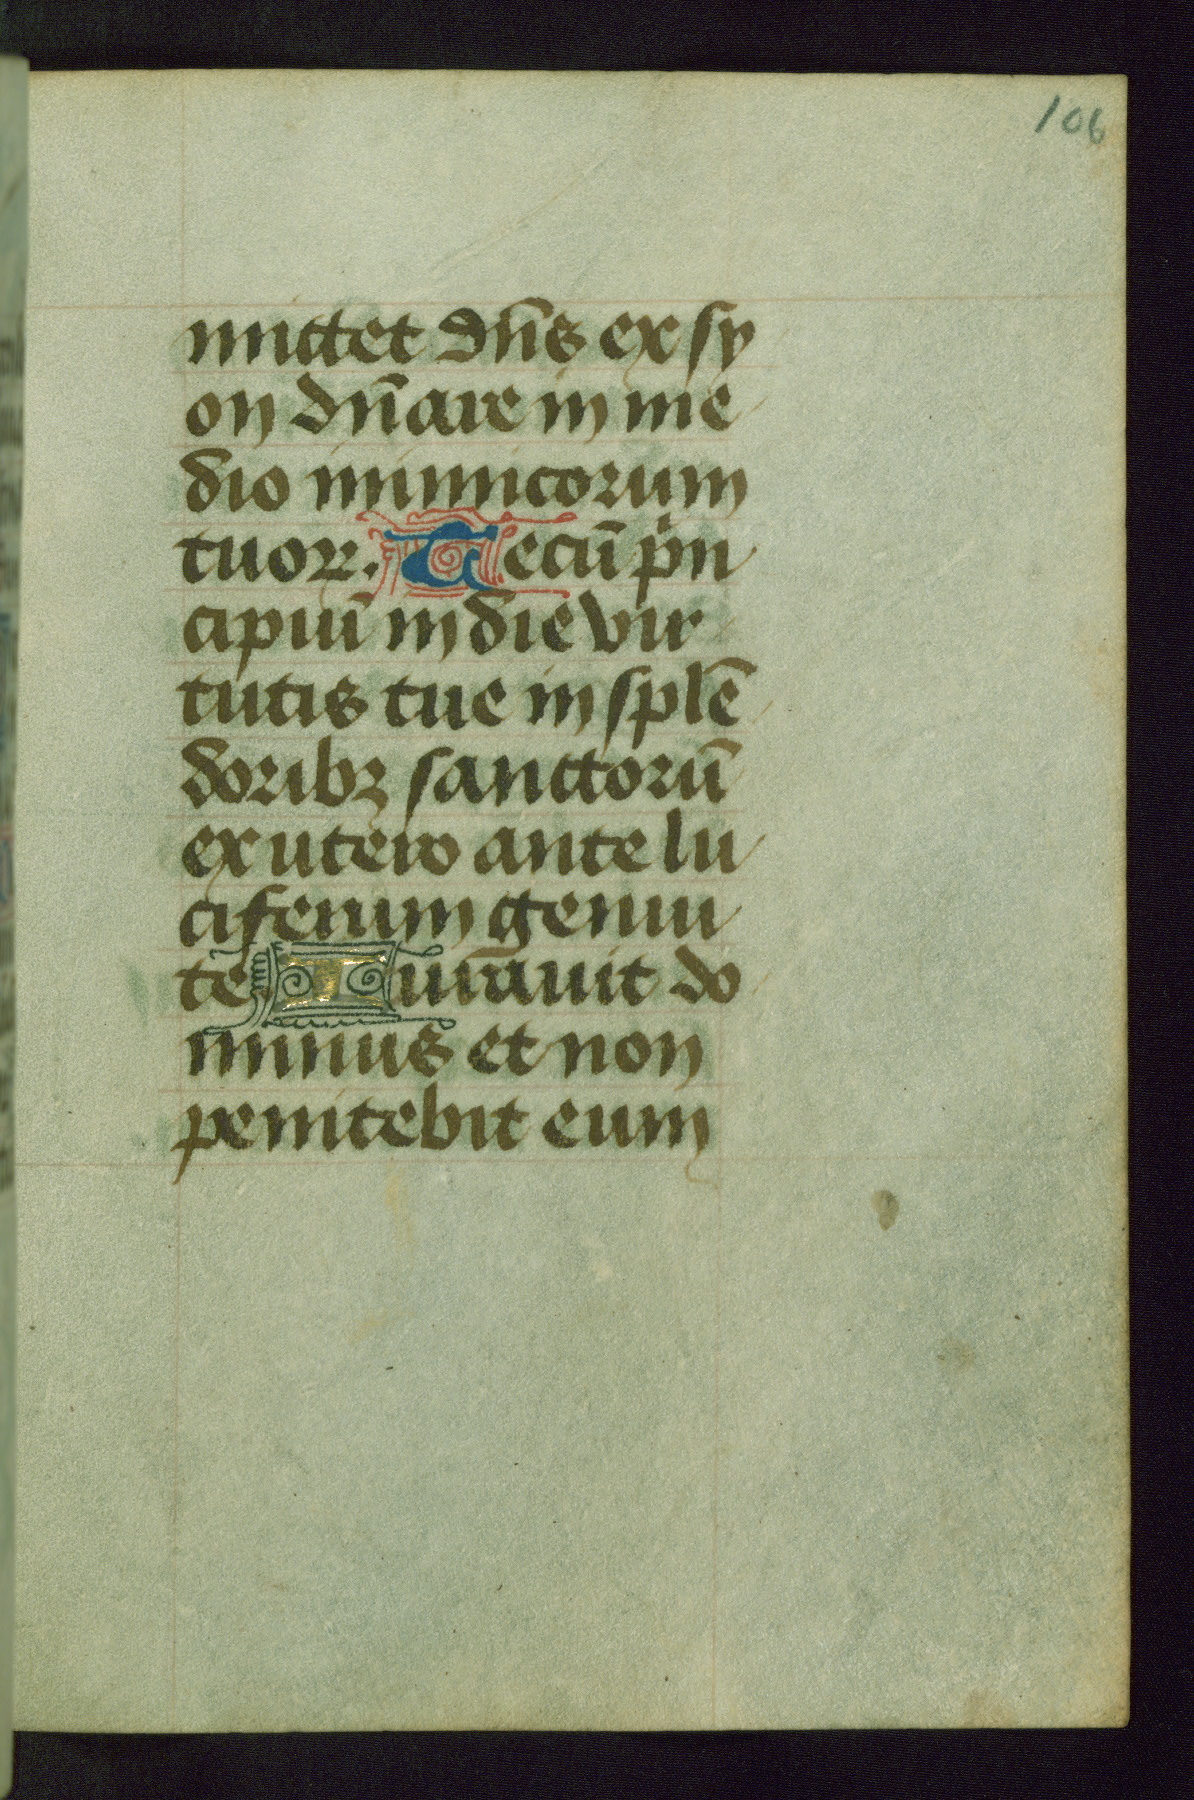 106
mittet dn̄s ex sy
on dn̄are in me
dio inimicorum
tuoꝝ. Tecū prin
cipiū in die vir
tutis tue in splē
doribꝫ sanctorū
ex utero ante lu
ciferum genui
te Iurauit do
minus et non
penitebit eum